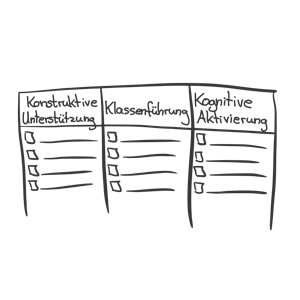 Konstruktive
Unterstützung
Klassenführung
Kognitive
Aktivierung